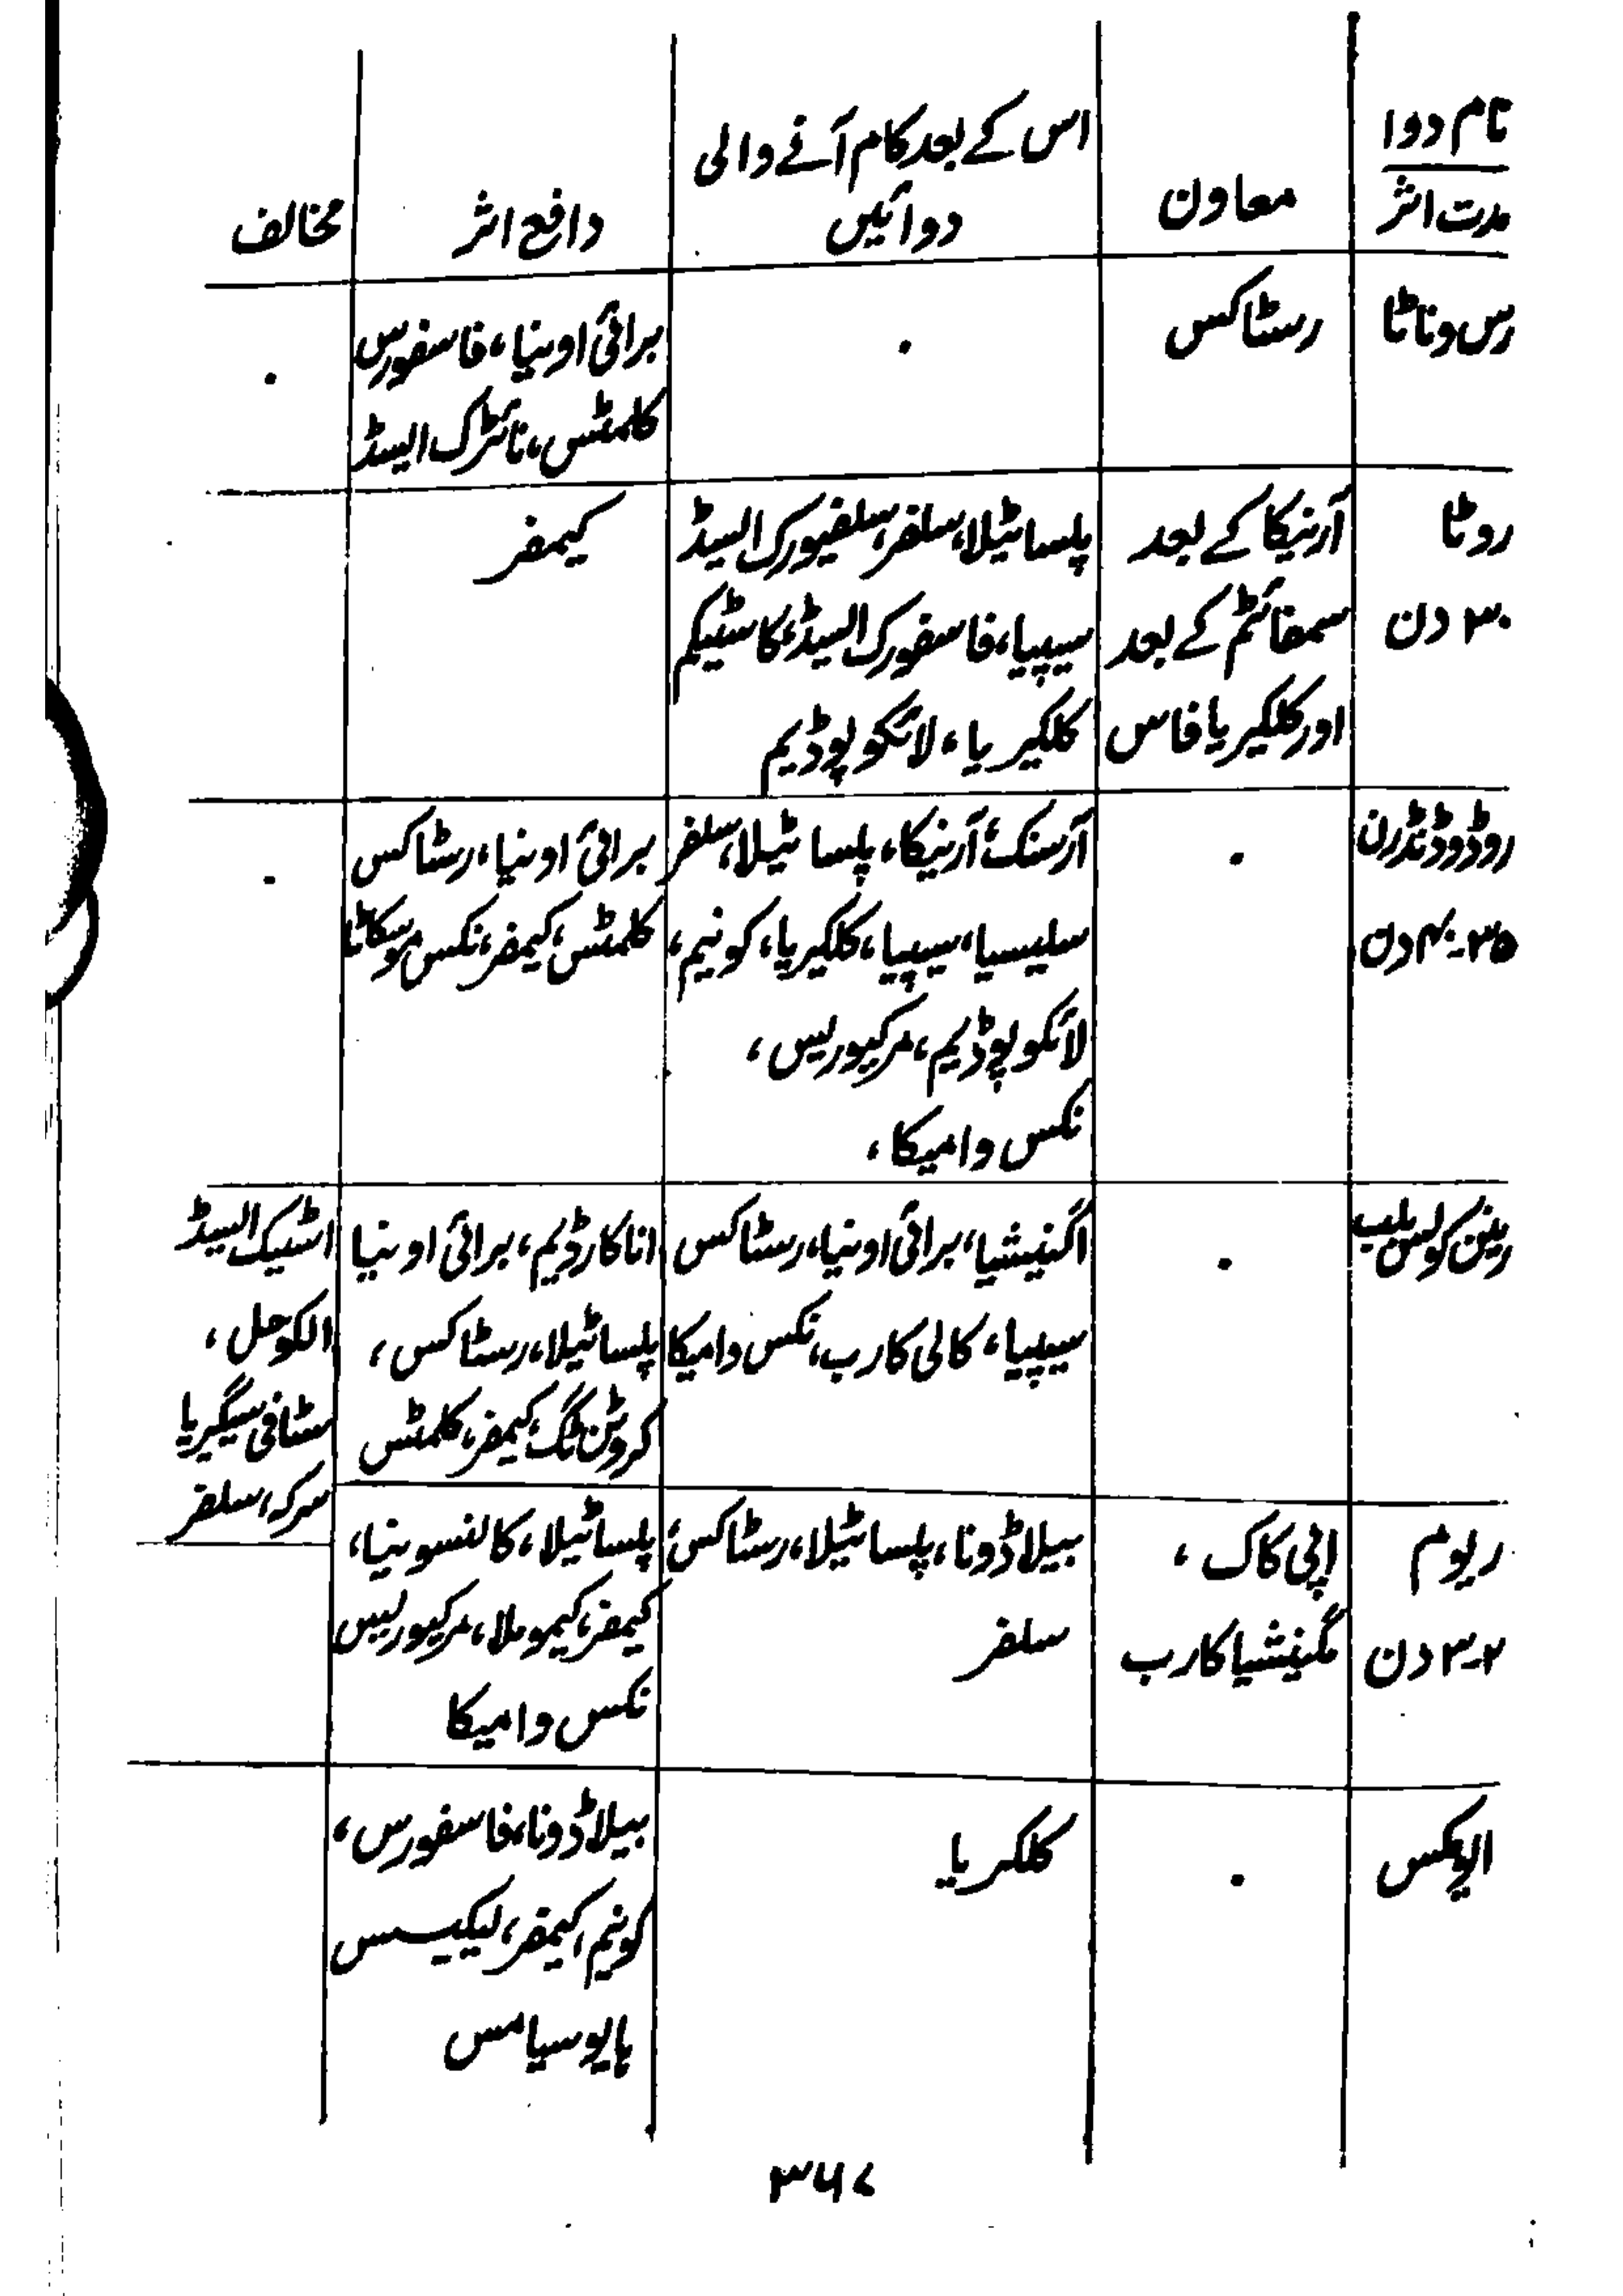 نام دوا
مدت اثر
معاون
اس کے بعد کام آنے والی
دوائیں
دافع اثر
مخالف
رس وناٹا
رسٹاکس
۰
برائی اونیا، فاسفورس
کلمٹس، نائٹرک ایسڈ
۰
روٹا
۳۰ دن
آرنیکا کے بعد
سمفائٹم کے بعد
اور کلکیریا فاس
پلساٹیلا، سلفر، سلفیورک ایسڈ
سیپیا، فاسفورک ایسڈ، کاسٹیکم
کلکیریا، لائکوپوڈیم
کیمفر
روڈوڈنڈرن
۳۵-۴۰ دن
۰
آرسنک، آرنیکا، پلساٹیلا، سلفر
سلیسیا، سیپیا، کلکیریا، کونیم،
لائکوپوڈیم، مرکیوریس،
نکس وامیکا،
برائی اونیا، رسٹاکس
کلمٹس، کیمفر، نکس موسکاٹا
۰
رینن کولس بلب
۰
اگنیشیا، برائی اونیا، رسٹاکس
سیپیا، کالی کارب، نکس وامیکا
اناکارڈیم، برائی اونیا
پلساٹیلا، رسٹاکس،
کروٹن ٹگ، کیمفر، کلمٹس
اسٹیک ایسڈ
الکوحل،
سٹافی سیگیریا
سرکہ، سلفر
ریوم
۲-۳ دن
اپی کاک،
مگنیشیا کارب
بیلاڈونا، پلساٹیلا، رسٹاکس،
سلفر
پلساٹیلا، کالنسونیا،
کیمفر، کیموملا، مرکیوریس
نکس وامیکا
۰
کلکریا
بیلاڈونا، فاسفورس،
کونیم، کیمفر، لیکیسس
ہایوسیامس
۳۶۷